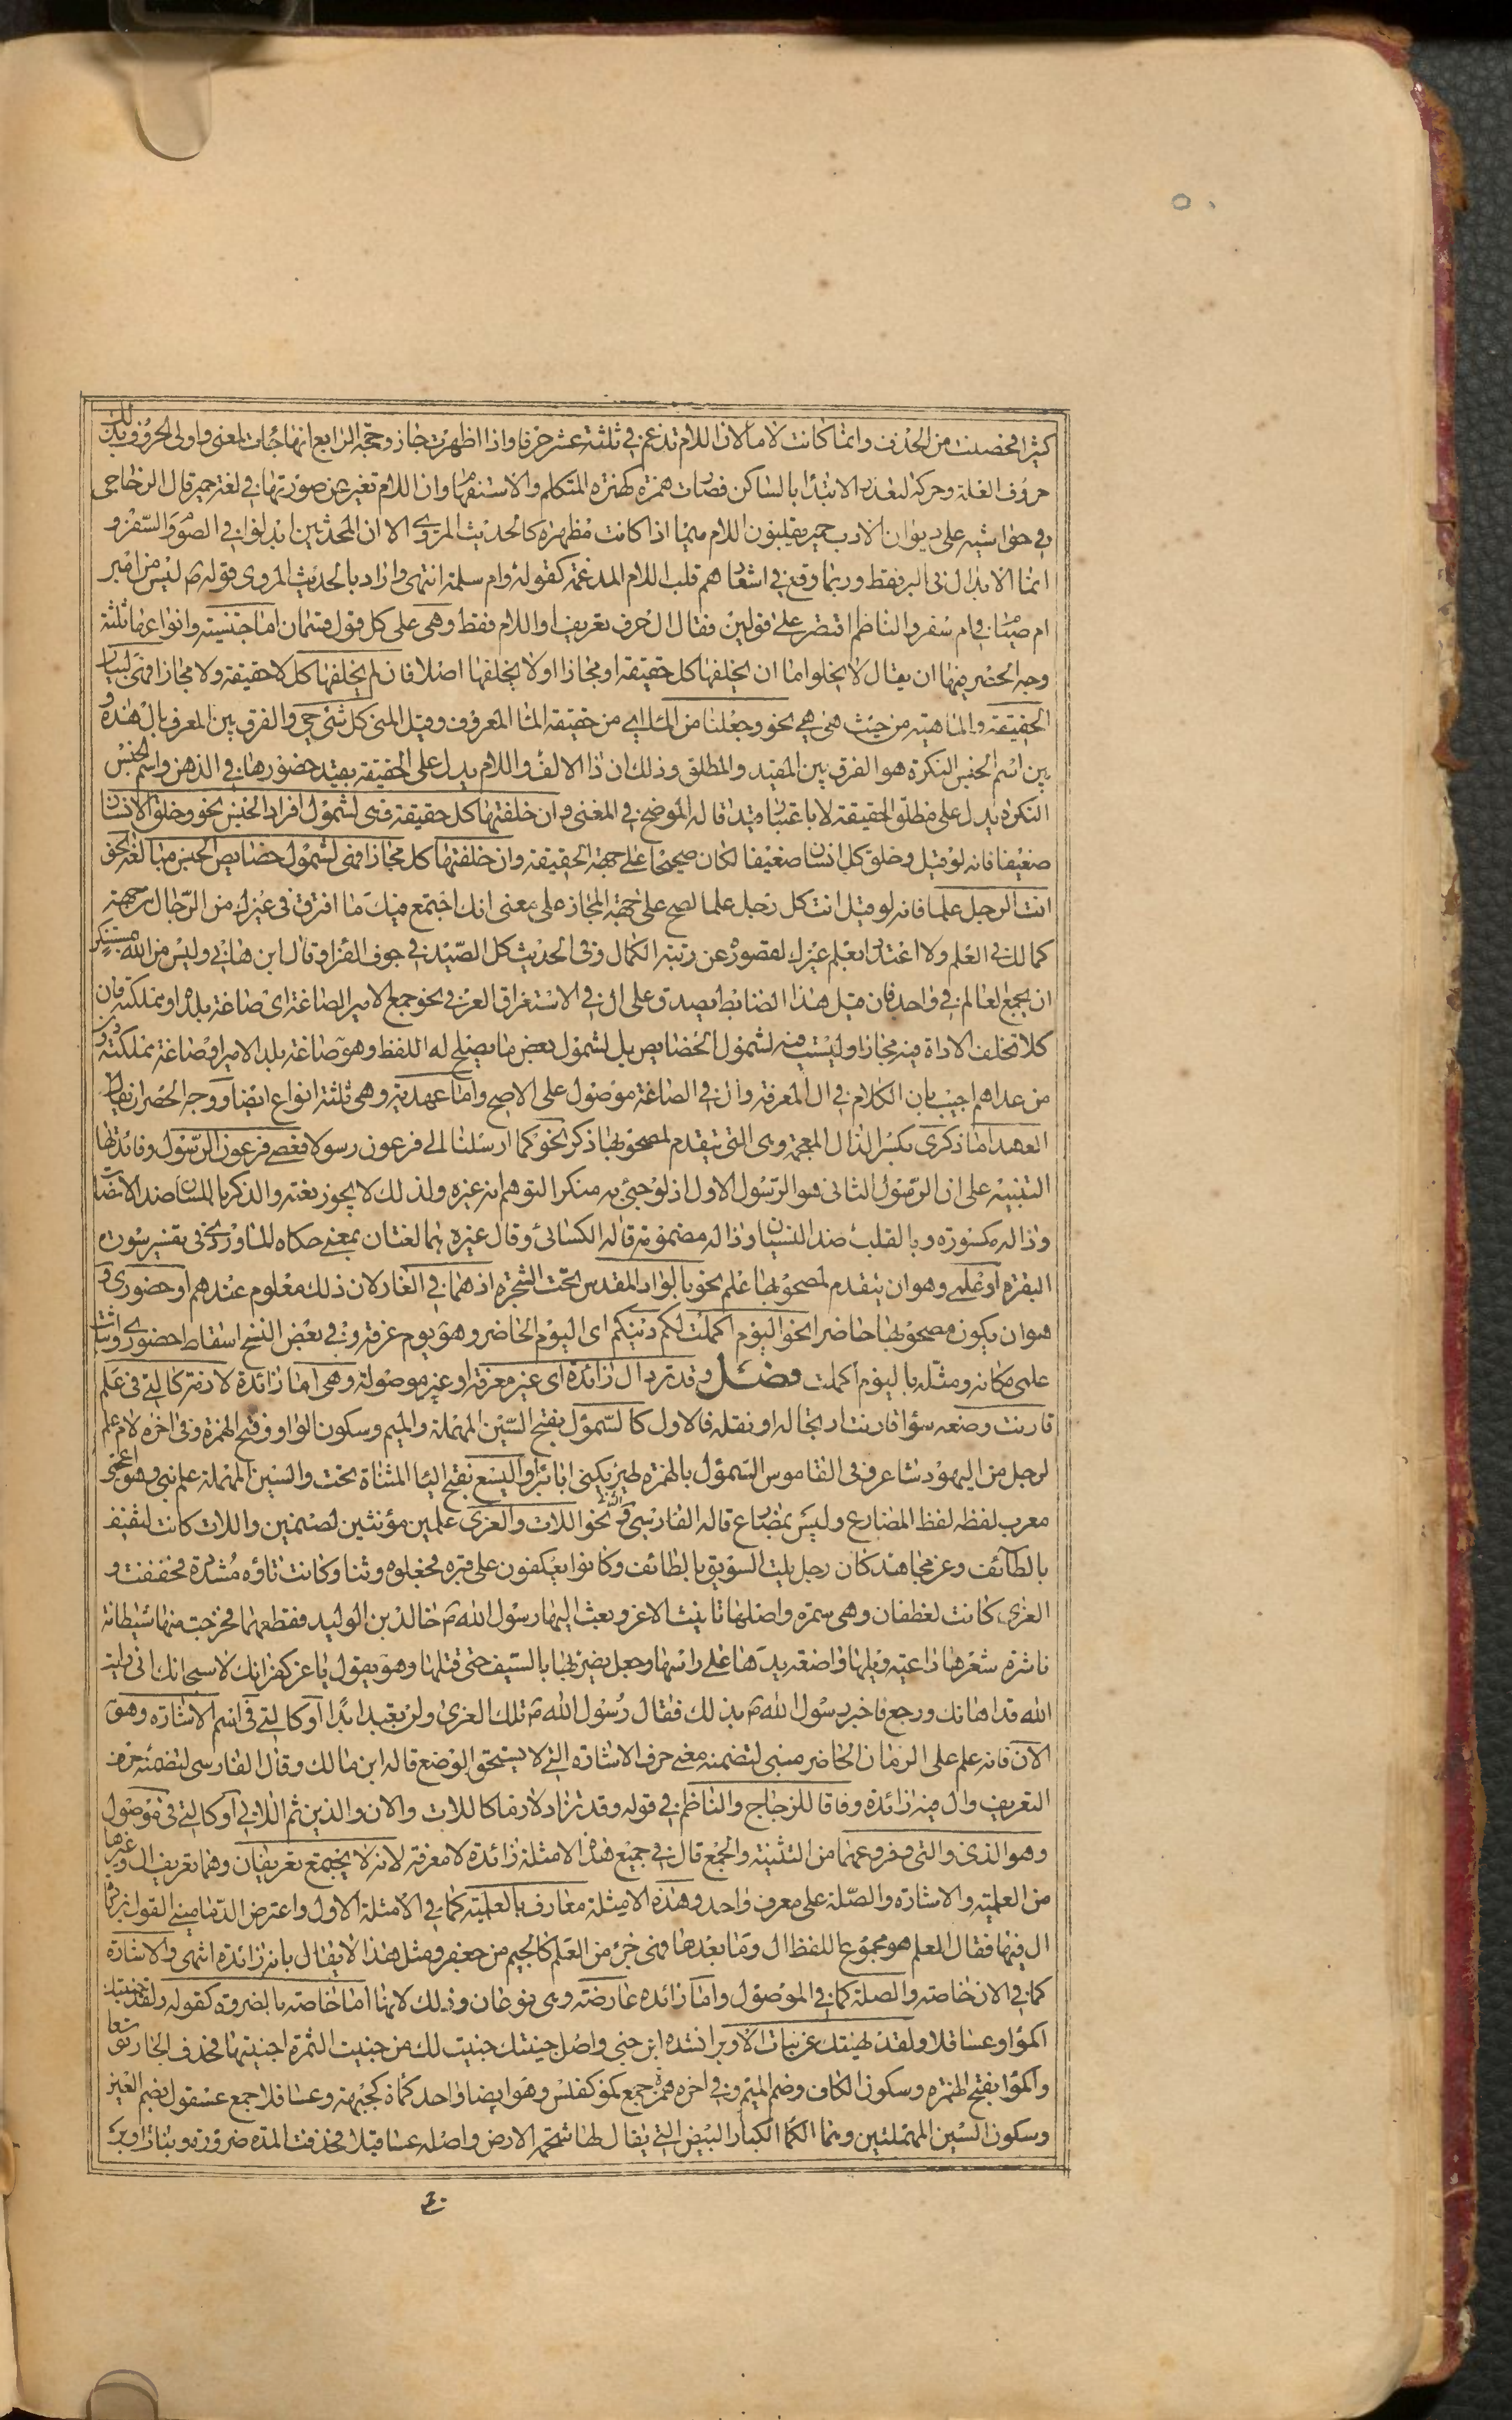 كثيرا فحصلت من الحذف وانما كانت لاما لان اللام تدغم في ثلثة عشر حرفا واذا اظهرت جاز وحجة الرابع انها جاءت لمعنى واولى الحروف بذلك
حروف العلة وحركت لتعذر الابتدا بالساكن فصارت همزة كهمزه المتكلم والاستفهام وان اللام تغير عن صورتها في لغة حمير قال الزجاجي
في حواشيه على ديوان الادب حمير يقلبون اللام ميما اذا كانت مظهرة كالحديث المروي الا ان المحدثين ابدلوا في الصوم والسفر و
انما الابدال في البر فقط وربما وقع في اشعارهم قلب اللام المدغمة كقوله وام سلمة انتهى واراد بالحديث المروى قوله ص ليس من امبر
ام صيام في ام سفر والناظم اقتصر على قولين فقال ال حرف تعريف او اللام فقط وهي على كل قول قسمان اما جنسية وانواعها ثلثة
وجه الحصر فيها ان يقال لا يخلوا اما ان يخلفها كل حقيقة او مجازا او لا يخلفها اصلا فان لم يخلفها كل لا حقيقة ولا مجازا فهي لبيان
الحقيقة والماهية من حيث هي هي نحو وجعلنا من الماء اي من حقيقة الماء المعروف وقيل المني كل شئ حي والفرق بين المعرف بال هذه و
بين اسم الجنس النكرة هو الفرق بين المقيد والمطلق وذلك ان ذا الالف واللام يدل على الحقيقة بقيد حضورها في الذهن واسم الجنس
النكرة يدل على مطلق الحقيقة لا باعتبار قيد قاله الموضح في المغني وان خلفتها كل حقيقة فهي لشمول افراد الجنس نحو وخلق الانسان
ضعيفا فانه لو قيل وخلق كل انسان ضعيفا لكان صحيحا على جهة الحقيقة وان خلفتها كل مجازا فهي لشمول خصايص الجنس مبالغة نحو
انت الرجل علما فانه لو قيل انت كل رجل علما لصح على جهة المجاز على معنى انك اجتمع فيك ما افترق في غيرك من الرجال من جهة
كمالك في العلم ولا اعتداد بعلم غيرك لقصوره عن رتبة الكمال وفي الحديث كل الصيد في جوف الفرا وقال ابن هاني وليس من الله بمستنكر
ان يجمع العالم في واحد فان قيل هذا الضابط يصدق على ال في الاستغراق العرفي نحو جمع الامير الصاغة اي صاغة بلده او مملكته فان
كلا تخلف الاداة فيه مجازا وليست فيه لشمول الخصايص بل لشمول بعض ما يصلح له اللفظ وهو صاغة بلد الامير او صاغة مملكته دون
من عداهم اجيب بان الكلام في ال المعرفة وال في الصاغة موصول على الاصح واما عهدية وهي ثلثة انواع ايضا ووجه الحصر ان يقال
العهد اما ذكري بكسر الذال المعجمة وهي التي يتقدم لمصحوبها ذكر نحو كما ارسلنا الى فرعون رسولا فعصى فرعون الرسول وفائدتها
التنبيه على ان الرسول الثاني هو الرسول الاول اذ لو جيئ به منكرا لتوهم انه غيره ولذلك لا يجوز نعته والذكر باللسان ضد الانصات
وذاله مكسورة وبالقلب ضد النسيان وذاله مضمومة قاله الكسائي وقال غيره هما لغتان بمعنى حكاه الماوردي في تفسير سورة
البقرة او علمي وهو ان يتقدم لمصحوبها علم نحو بالواد المقدس تحت الشجرة اذ هما في الغار لان ذلك معلوم عندهم او حضوري و
هو ان يكون مصحوبها حاضرا نحو اليوم اكملت لكم دينكم اي اليوم الحاضر وهو يوم عرفة وفي بعض النسخ اسقاط حضوري واثبات
علمي مكانه ومثله باليوم اكملت فصل وقد ترد ال زائدة اي غير معرفة او غير موصولة وهي اما زائدة لازمة كالتي في علم
قارنت وضعه سؤا قارنت ارتجاله او نقله فالاول كالسموئل بفتح السين المهملة والميم وسكون الواو وفتح الهمزة وفي اخره لام علم
لرجل من اليهود شاعر في القاموس السموئل بالهمزة طير يكنى ابا براء واليسع بفتح اليا المثناة تحت والسين المهملة علم نبي وهو اعجمي
معرب لفظه لفظ المضارع وليس بمضارع قاله الفارسي ونحو اللات والعزى علمين مؤنثين لصنمين واللات كانت لثقيف
بالطائف وعن مجاهد كان رجل يلت السويق بالطائف وكانوا يعكفون على قبره فجعلوه وثنا وكانت تاؤه مشددة فخففت و
العزى كانت لغطفان وهي سمرة واصلها تانيث الاعز وبعث اليها رسول الله ص خالد بن الوليد فقطعها فخرجت منها شيطانة
ناشرة شعرها داعية ويلها واضعة يدها على راسها وجعل يضربها بالسيف حتى قتلها وهو يقول يا عز كفرانك لا سبحانك اني رايت
الله قد اهانك ورجع فاخبر رسول الله ص بذلك فقال رسول الله ص تلك العزى ولن تعبد ابدا او كالتي في اسم الاشارة وهو
الان فانه علم على الزمان الحاضر مبني لتضمنه معنى حرف الاشارة التي لا يستحق الوضع قاله ابن مالك وقال الفارسي لتضمنه حرف
التعريف وال فيه زائدة وفاقا للزجاج والناظم في قوله وقد تزاد لازما كاللات والان والذين ثم اللاتي او كالتي في موصول
وهو الذي والتي وفروعهما من التثنية والجمع قال في جميع هذه الامثلة زائدة لا معرفة لانه لا يجتمع تعريفان وهما تعريف ال وغيرها
من العلمية والاشارة والصلة على معرف واحد وهذه الامثلة معارف بالعلمية كما في الامثلة الاول واعترض الدماميني القول بزيادة
ال فيها فقال العلم هو مجموع اللفظ ال وما بعدها فهي جزء من العلم كالجيم من جعفر ومثل هذا لا يقال بانه زائدة انتهى والاشارة
كما في الان خاصة والصلة كما في الموصول واما زائدة عارضة وهي نوعان وذلك لانها اما خاصة بالضرورة كقوله ولقد جنيتك
اكمؤا وعساقلا ولقد نهيتك عن بنات الاوبر انشده ابن جني واصل جنيتك جنيت لك من جنيت الثمرة اجنيها فحذف الجار توسعا
واكمؤا بفتح الهمزة وسكون الكاف وضم الميم وفي اخره همزة جمع كمؤ كفلس وهو ايضا واحد كماة كجبهة وعساقلا جمع عسقول بضم العين
وسكون السين المهملتين وهما الكما الكبار البيض التي يقال لها شحمة الارض واصله عساقيلا فحذفت المدة ضرورة وبنات اوبر